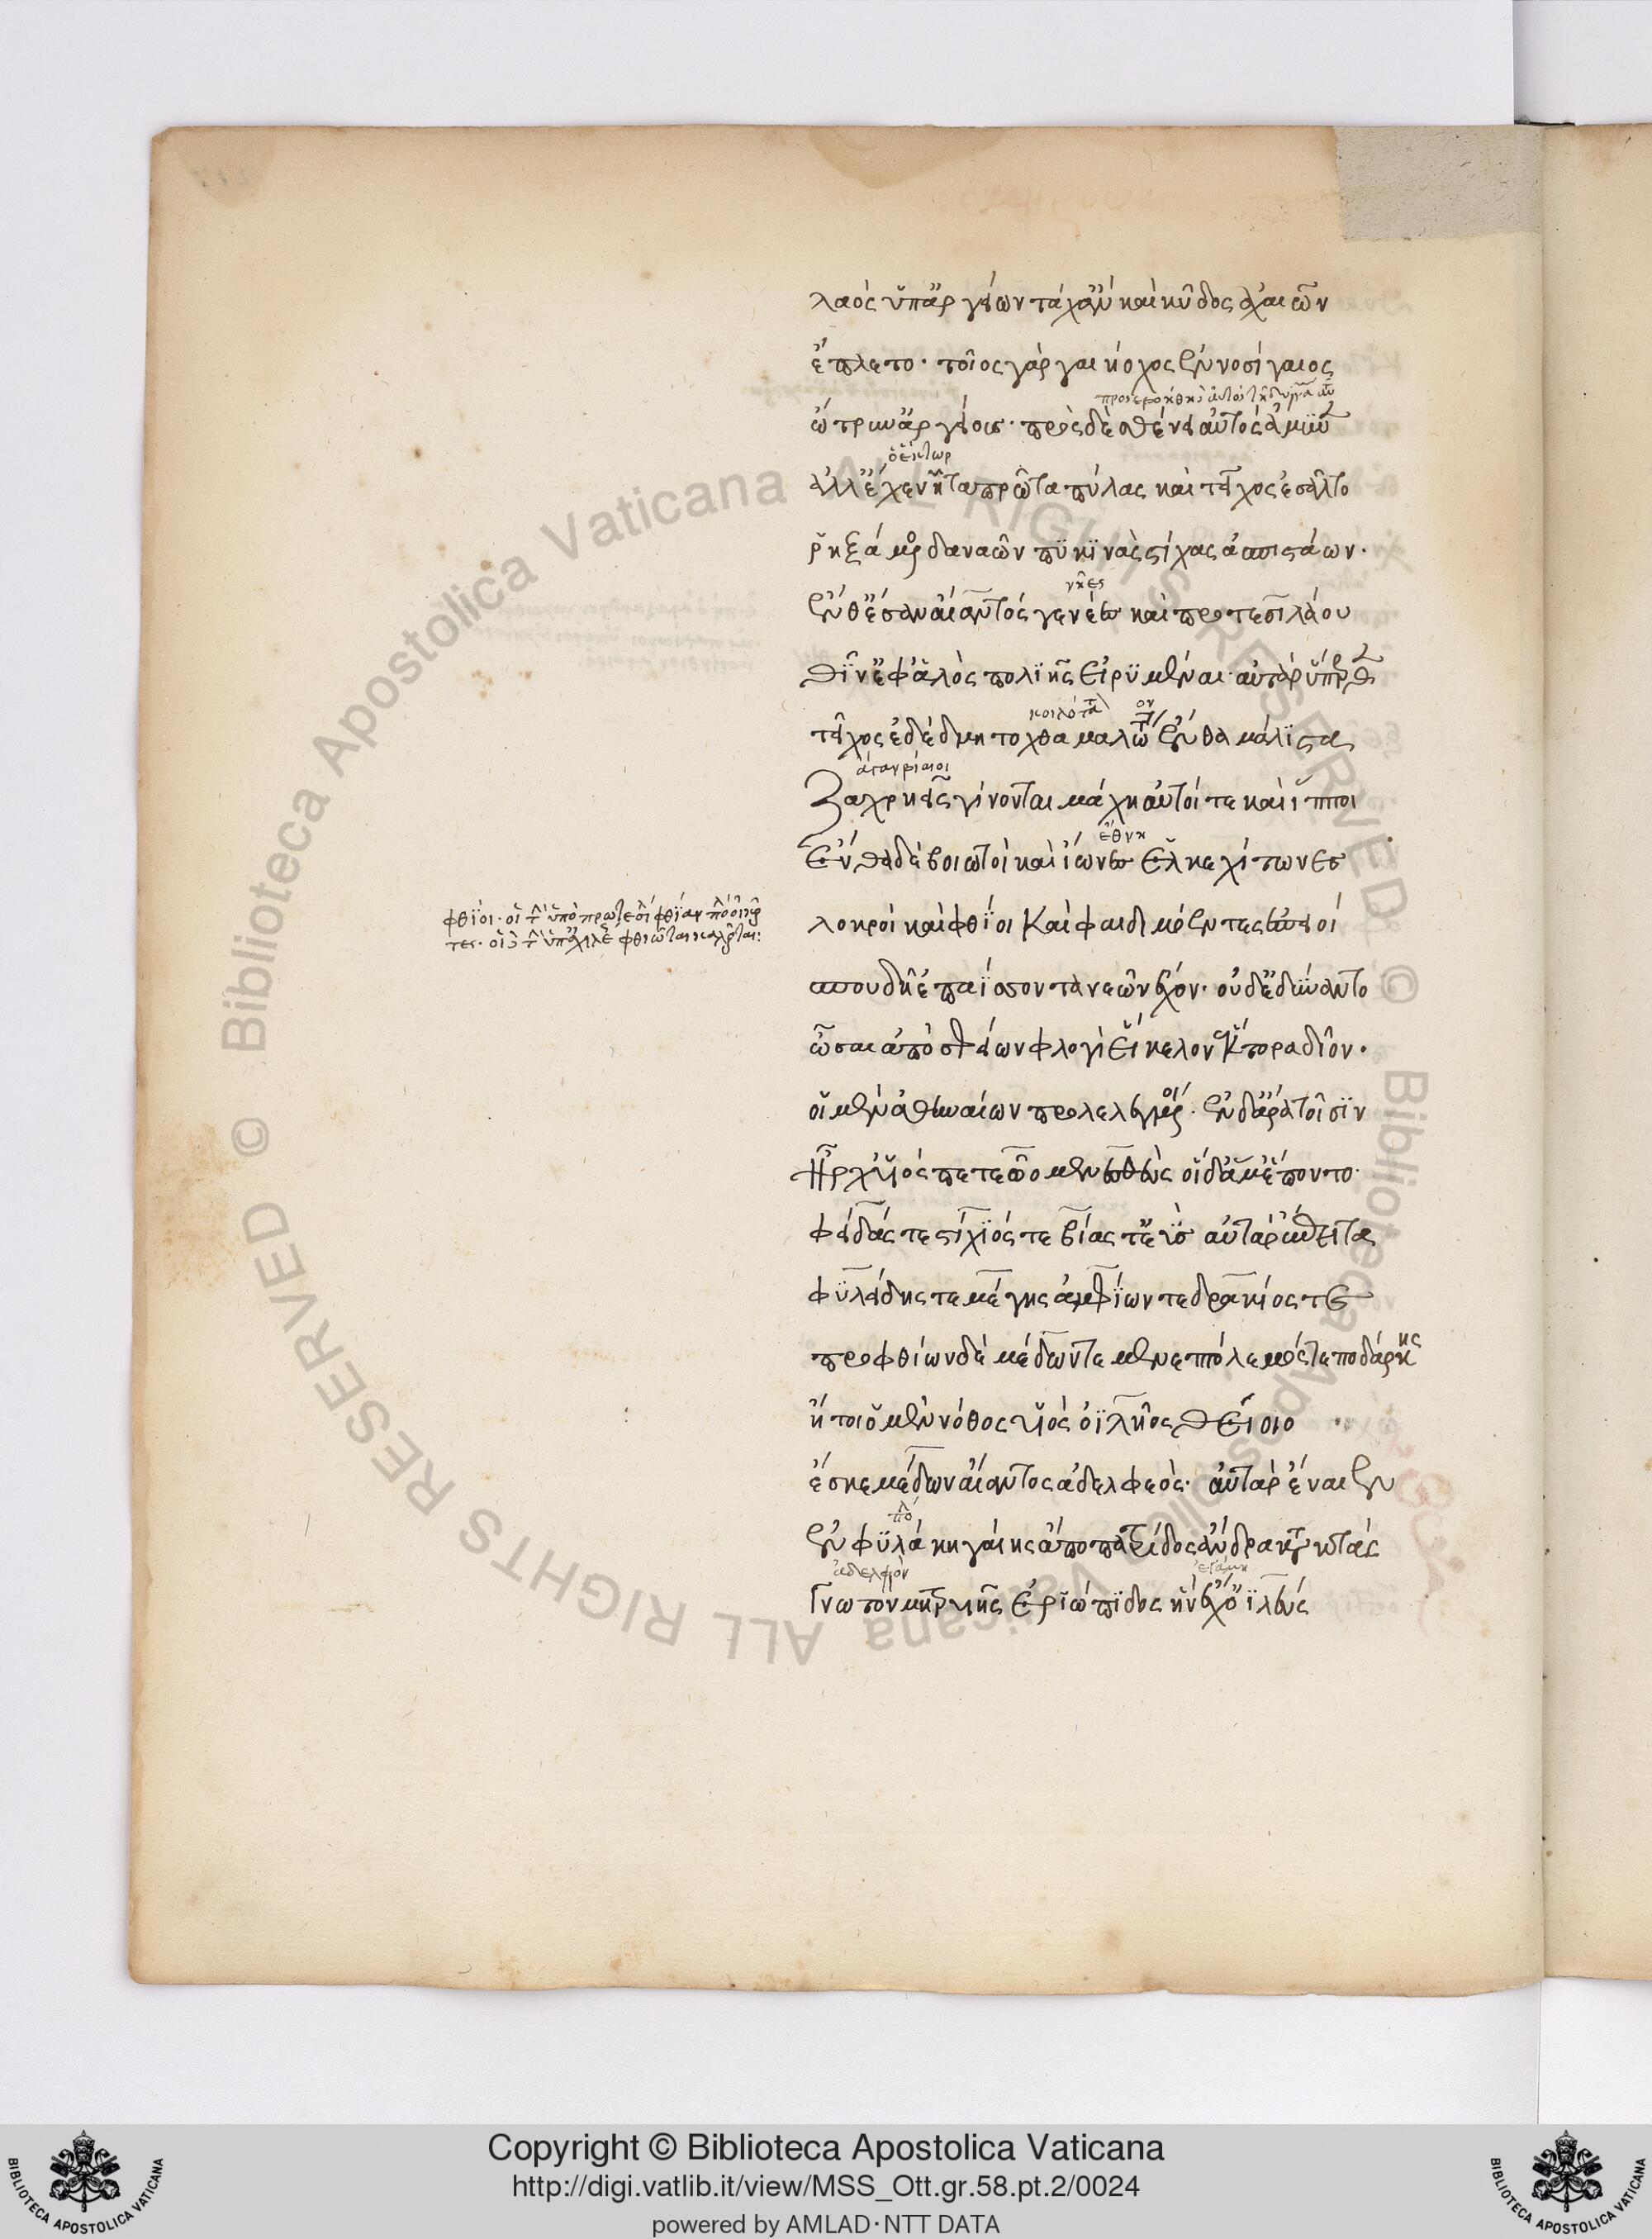 λαὸς ὕπ' ἀργείων τάχα δ' ἂν καὶ κῦδος ἀχαιῶν
ἔπλετο· τοῖος γὰρ γαιήοχος ἐννοσίγαιος
ὤτρυν' ἀργείους· πρὸς δὲ σθένει αὐτὸς ἄμυνεν
ὁ ἕκτωρ
ἀλλ' ἔχεν ᾗ τὰ πρῶτα πύλας καὶ τεῖχος ἐσᾶλτο
ῥηξάμενος δαναῶν πϋκϊνὰς στίχας ἀσπιστάων.
νῆες
ἔνθ' ἔσαν αἴαντός γε νέες καὶ πρωτεσιλάου
θῖν' ἔφ' ἁλὸς πολϊῆς εἰρϋμέναι· αὐτὰρ ὕπερθεν
τεῖχος ἐδέδμητο χθαμαλώτατον ἔνθα μάλϊστα
ζαχρηεῖς γίνονται μάχη αὐτοί τε καὶ ἵπποι
ἔθνη
ἔνθα δὲ βοιωτοὶ καὶ ἰάονες ἑλκεχίτωνες
λοκροὶ καὶ φθῖοι καὶ φαιδιμόεντες ἐπειοί
σπουδῇ ἐπαΐσσοντα νεῶν ἔχον· οὐδ' ἐδύναντο
ὦσαι ἀπὸ σφείων φλογὶ εἴκελον ἕκτορα δῖον.
οἳ μὲν ἀθηναίων προλελεγμένοι. ἐν δ' ἄρα τοῖσϊν
ἦρχ' υἱὸς πετεῶο μενεσθεύς οἱ δ' ἅμ' ἕποντο·
φείδάς τε στιχίός τε βίας τ' ἐΰς αὐτὰρ ἐπειτα
φϋλείδης τε μέγης ἀμφΐων τε δρακίος τε
πρὸ φθίων δὲ μέδων τε μενεπτόλεμός τε ποδάρκης
ἤτοι ὃ μὲν νόθος υἱὸς ὀϊλῆος θείοιο
ἔσκε μέδων αἴαντος ἀδελφεός· αὐτὰρ ἔναιεν
ἐν φϋλάκη γαίης ἄπο πατρίδος ἄνδρα κατακτάς
ἀδελφὸν
γνωτὸν μητρυιῆς ἐριώπϊδος ἣν ἔχ' ὀϊλεύς
Copyright © Biblioteca Apostolica Vaticana
http://digi.vatlib.it/view/MSS_Ott.gr.58.pt.2/0024
powered by AMLAD·NTT DATA